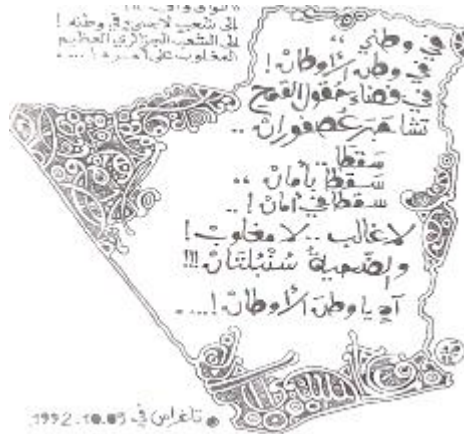 إلى شعب لاجئ في وطنه!
إلى الشعب الجزائري العظيم
المغلوب على أمره!....
في وطني ،،
في وطن الأوطان!
في فضاء حقول القمح
تشاجر عصفوران ..
سقطا
سقطا بأمان ،،
سقطا في أمان! ..
لا غالب .. لا مغلوب!
والضحية سنبلتان!!!
آه يا وطن الأوطان!....
تاغراس في 1992.10.09